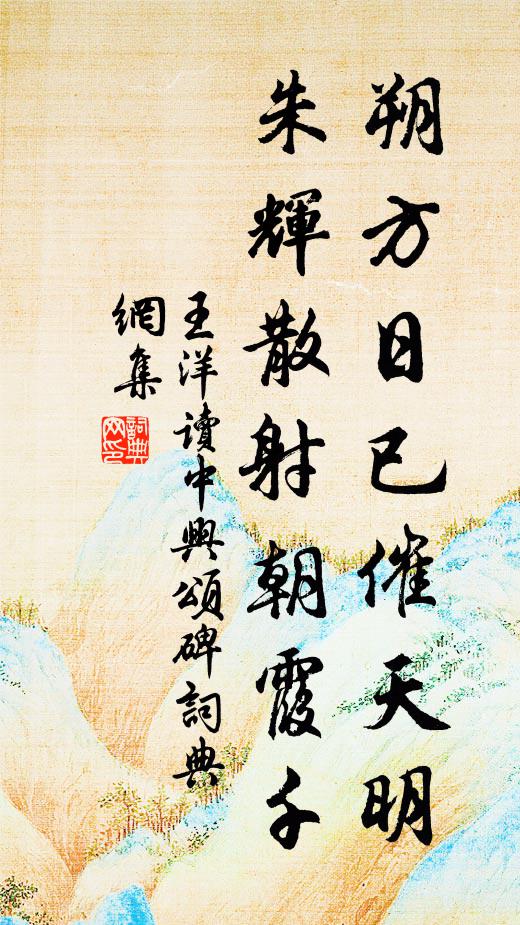 朔方日已催天明
朱輝散射朝霞千
王洋讀中興頌碑詞典
網集
詞典
网印